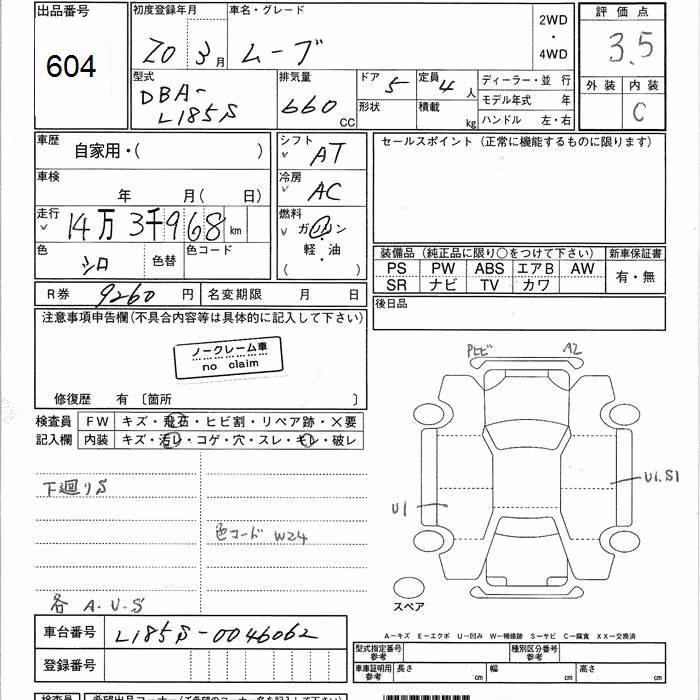 出品番号 初度登録年月 車名・グレード 2WD・4WD 評価点
604 20 3月 ムーブ 3.5
型式 排気量 ドア 定員 ディーラー・並 行 外装 内装
DBA- 660 CC 5 4人 モデル年式 年 C
L185S 形状 積載 kg ハンドル 左・右
車歴 シフト セールスポイント (正常に機能するものに限ります)
自家用・( ) AT
車検 冷房
年 月(日) AC
走行 14万3千968 km 燃料
ガソリン・軽・油
( )
色 シロ 色替 色コード
装備品 (純正品に限り○をつけて下さい) 新車保証書
PS PW ABS エアB AW 有・無
SR ナビ TV カワ
R券 9260 円 名変期限 月 日 後日品
注意事項申告欄(不具合内容等は具体的に記入して下さい)
ノークレーム車
no claim
修復歴 有 〔箇所 〕
検査員 FW キズ・飛石・ヒビ割・リペア跡・×要
記入欄 内装 キズ・汚レ・コゲ・穴・スレ・キレ・破レ
下廻りS
色コード W24
各 A・U・S
PヒビA2
U1
U1.S1
スペア
A−キズ E−エクボ U−凹み W−補修跡 S−サビ C−腐食 XX−交換済
車台番号 L185S-0046062
型式指定番号 参考 種別区分番号 参考
登録番号
車庫証明用 参考 長さ cm 幅 cm 高さ cm
検査員 希望出品コーナー(ご希望のコーナー名を記